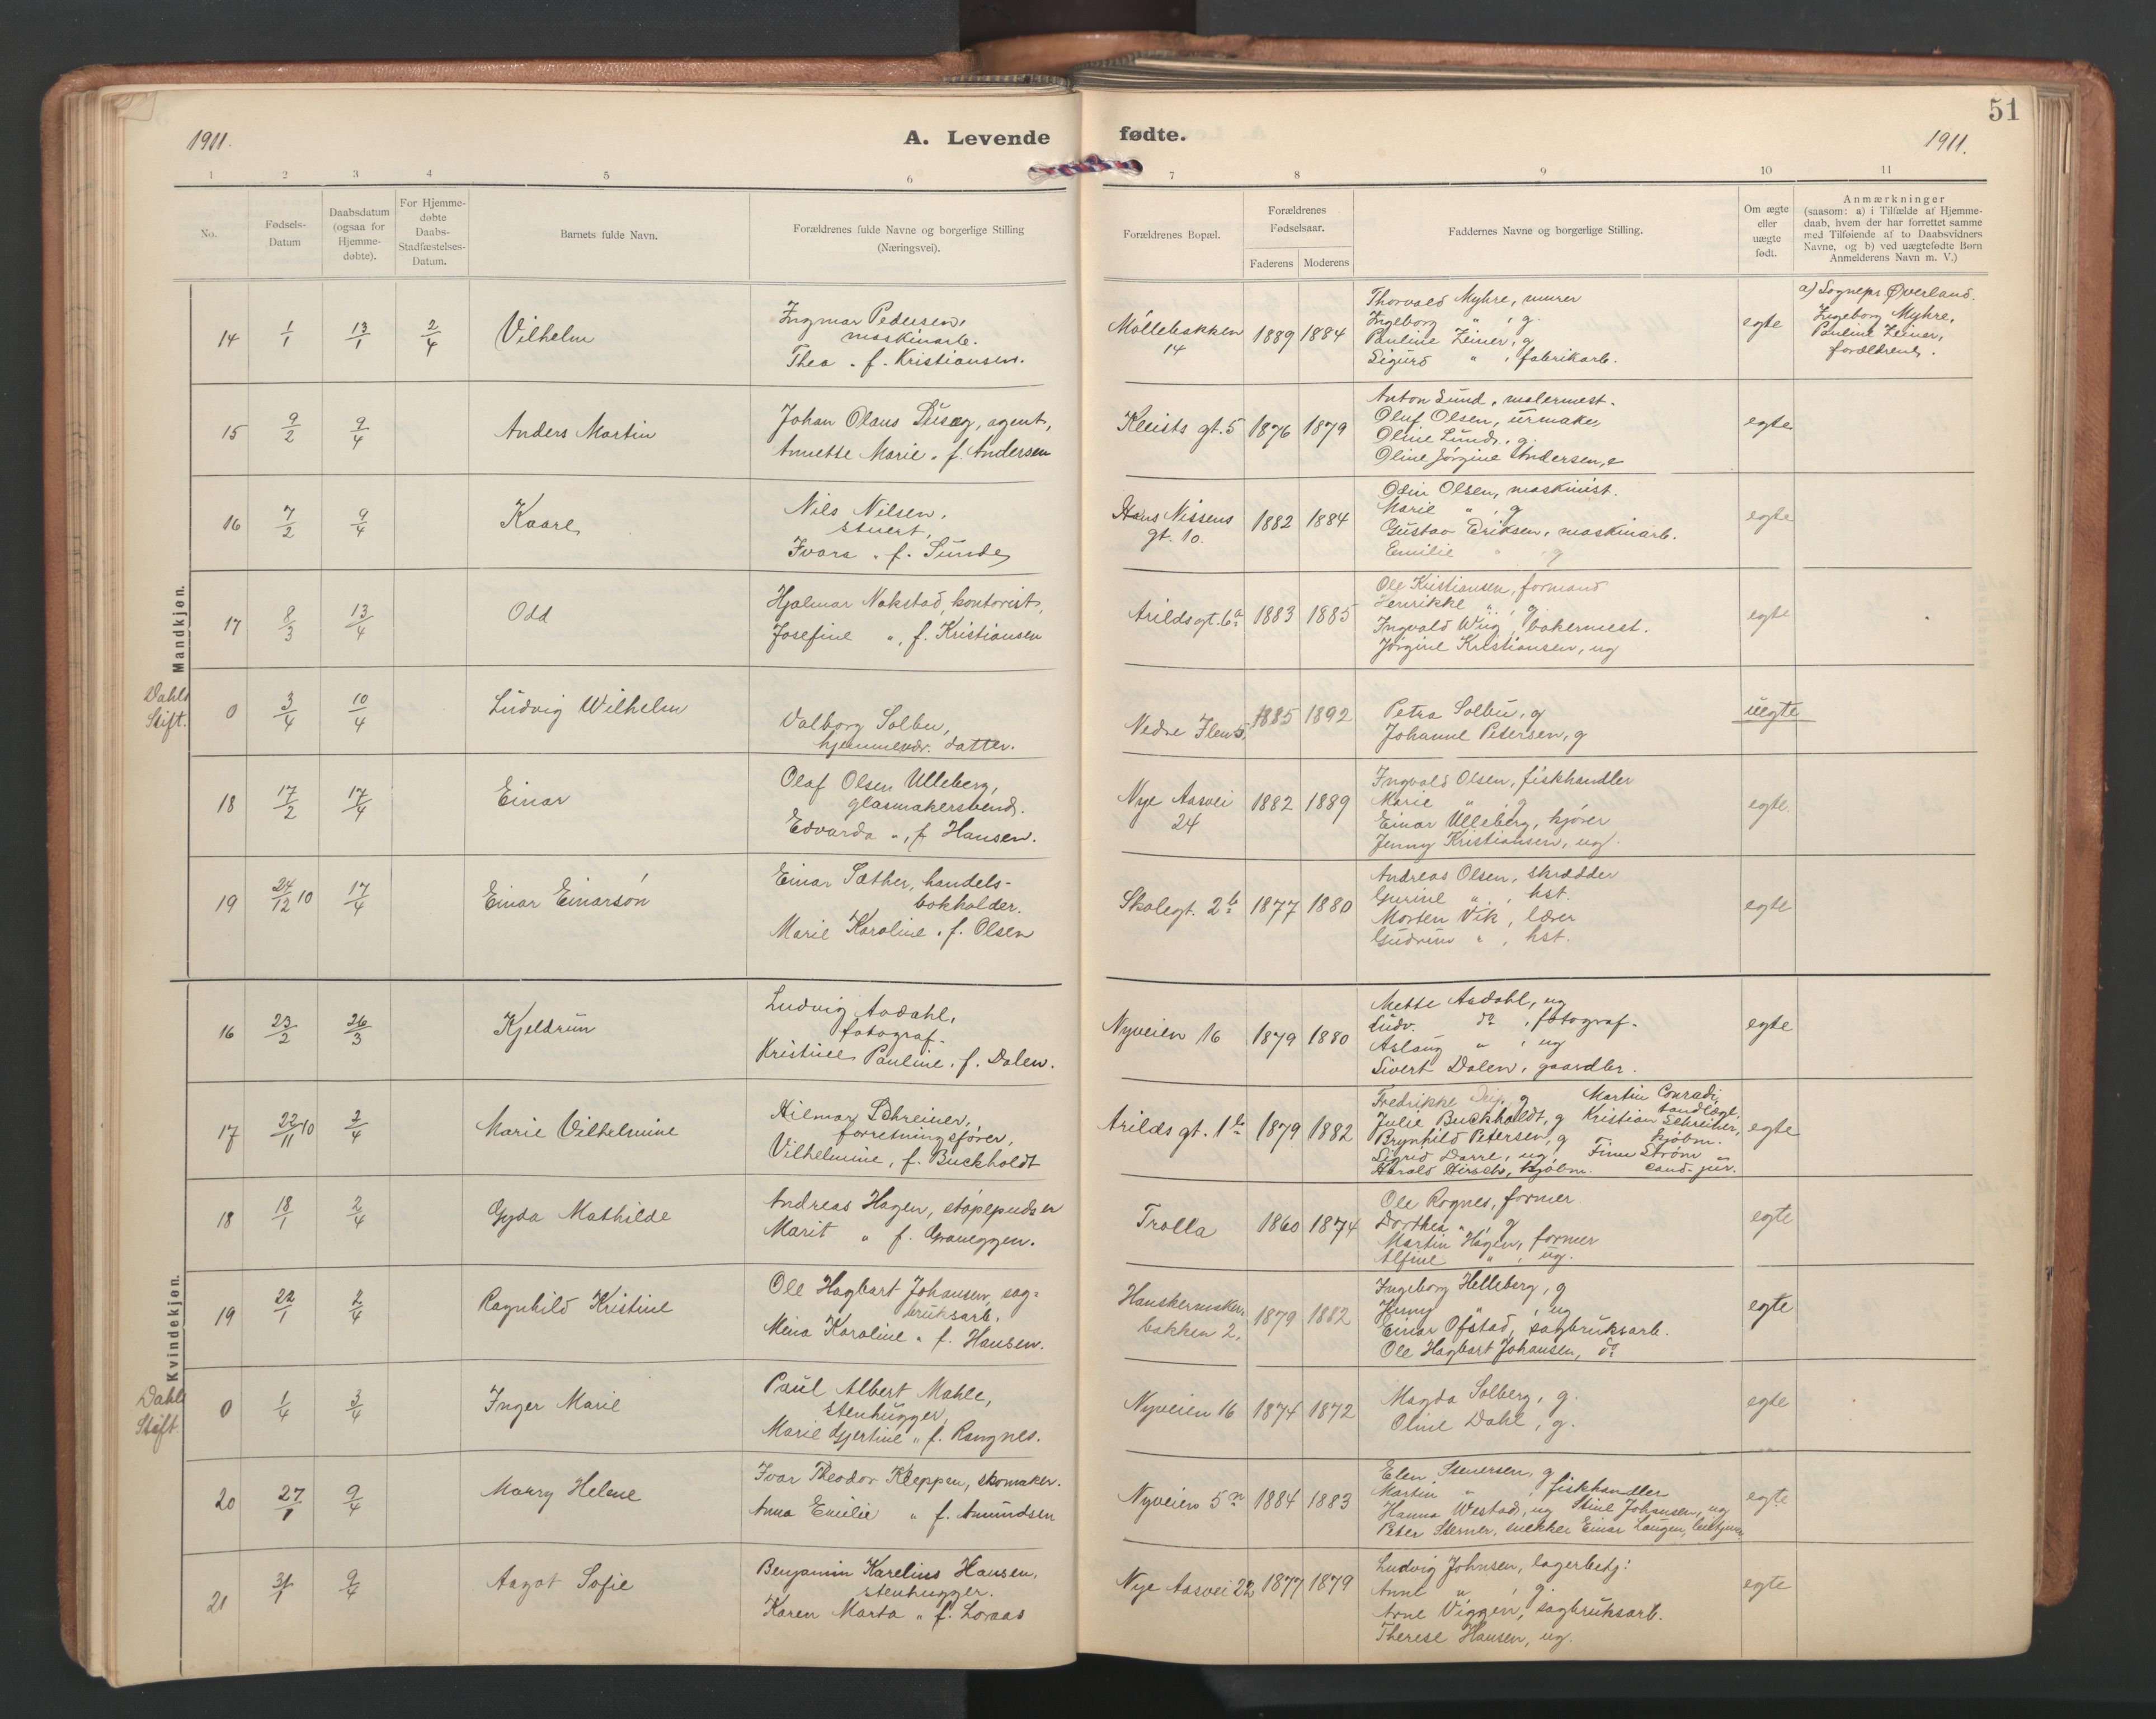 51
1911.
A. Levende fødte.
1911.
1 2 3 4 5 6 7 8 9 10 11
No.
Fødsels-
Datum
Daabsdatum
(ogsaa for
Hjemme-
døbte).
For Hjemme-
døbte
Daabs-
Stadfæstelses-
Datum.
Barnets fulde Navn.
Forældrenes fulde Navne og borgerlige Stilling
(Næringsvei).
Forældrenes Bopæl.
Forældrenes
Fødselsaar.
Faderens Moderens
Faddernes Navne og borgerlige Stilling.
Om ægte
eller
uægte
født.
Anmærkninger
(saasom: a) i Tilfælde af Hjemme-
daab, hvem der har forrettet samme
med Tilføiende af to Daabsvidners
Navne, og b) ved uægtefødte Børn
Anmelderens Navn m. V.)
Mandkjøn.
14 1/1 13/1 2/4 Vilhelm
Ingmar Pedersen,
maskinarb.
Thea „ f. Kristiansen.
Møllebakken
14
1889 1884
Thorvald Myhre, murer
Ingeborg „ , g.
Pauline Zeiner, g
Sigurd „ , fabrikarb.
egte
a) Sognepr. Øverland.
Ingeborg Myhre,
Pauline Zeiner,
forældrene.
15 9/2 9/4 Anders Martin
Johan Olaus, agent,
Annette Marie „ f. Andersen
Kleists gt. 5 1876 1879
Anton Lund, malermest.
Oluf Olsen, urmaker
Oline Lund, g.
Oline Jørgine Andersen, e
egte
16 7/2 9/4 Kaare
Nils Nilsen,
stuert,
Ivara „ f. Sunde
Hans Nissens
gt. 10.
1882 1884
Odin Olsen, maskinist.
Marie „ , g
Gustav Eriksen, maskinarb.
Emilie „ , g
egte
17 8/3 13/4 Odd
Hjalmar Nakstad, kontorist,
Josefine „, f. Kristiansen
Arildsgt. 6a 1883 1885
Ole Kristiansen, formand
Henrikke „ , g.
Ingvald Wiig, bakermest.
Jørgine Kristiansen, ug
egte
Dahls
Stift.
0 3/4 10/4 Ludvig Wilhelm
Valborg Solbu,
hjemmevær. datter.
Nedre Ilen 5. 1885 1892
Petra Solbu, g
Johanne Petersen, g
uegte
18 17/2 17/4 Einar
Olaf Olsen Ulleberg,
glasmakersvend.
Edvarda „, f. Hansen.
Nye Aasvei
24
1882 1889
Ingvald Olsen, fiskhandler
Marie „ , g
Einar Ulleberg, kjører
Jenny Kristiansen, ug.
egte
19 24/12 10 17/4 Einar Einarsøn
Einar Sæther, handels-
bokholder.
Marie Karoline „ f. Olsen
Skolegt. 2b 1877 1880
Andreas Olsen, skrædder
Gurine „ , hst.
Morten Vik, lærer
Gudrun „ , hst.
egte
Kvindekjøn.
16 23/2 26/3 Kjeldrun
Ludvig Aadahl,
fotograf.
Kristine Pauline, f. Dalen.
Nyveien 16 1879 1880
Mette Aadahl, ug
Ludv. do , fotograf.
Aslaug „ , ug
Sivert Dalen, gaardbr.
egte
17 22/11 10 2/4 Marie Vilhelmine
Hilmar Schreiner,
forretningsfører,
Vilhelmine, f. Buckholdt
Arilds gt. 1b 1879 1882
Fredrikke, g Martin Conradi, tandlæge,
Julie Buckholdt, g Kristian Schreiner,
Brynhild Petersen, g kjøbm.
Sigrid Darre, ug. Finn Strøm
Harald Hirsch, kjøbm. cand. jur.
egte
18 18/1 2/4 Gyda Mathilde
Andreas Hagen, støpepudser
Marit „ f. Graneggen.
Trolla 1860 1874
Ole Rognes, former.
Dorthea „, g
Martin Hagen, former
Alfine „ , ug.
egte
19 22/1 2/4 Ragnhild Kristine
Ole Hagbart Johansen, sag-
bruksarb.
Mina Karoline „ f. Hansen.
Hanskemaker-
bakken 2.
1879 1882
Ingeborg Helleberg, g
Jenny „ , ug
Einar Ofstad, sagbruksarb.
Ole Hagbart Johansen, do
egte
Dahls
Stift.
0 1/4 3/4 Inger Marie
Paul Albert Mahle,
stenhugger,
Marie Gjertine „ f. Rangnes.
Nyveien 16 1874 1872
Magda Solberg, g.
Oline Dahl, g.
egte
20 27/1 9/4 Marry Helene
Ivar Theodor Kleppen, skomaker.
Anna Emilie „ f. Amundsen
Nyveien 5n 1884 1883
Elen, g
Martin „ , fiskhandler
Hanna Westad, ug Stine Johansen, ug
Peter, snekker Einar Laugen,
egte
21 31/1 9/4 Aagot Sofie
Benjamin Karelius Hansen,
stenhugger.
Karen Marta „ f. Loraas
Nye Aasvei 22 1877 1879
Ludvig Johnsen, lagerbetj.
Anne „ , g.
Arne Viggen, sagbruksarb.
Therese Hansen, ug.
egte